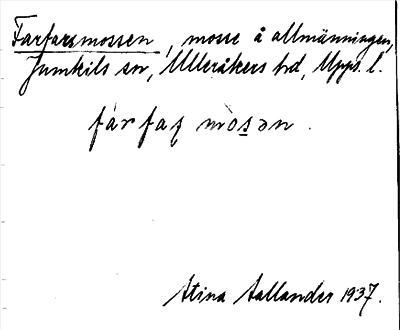 Farfarsmossen, mosse å allmänningen,
Jumkils sn, Ulleråkers hd, Upps. l.
fàrfaʂ mosən.
Stina Aallander 1937.